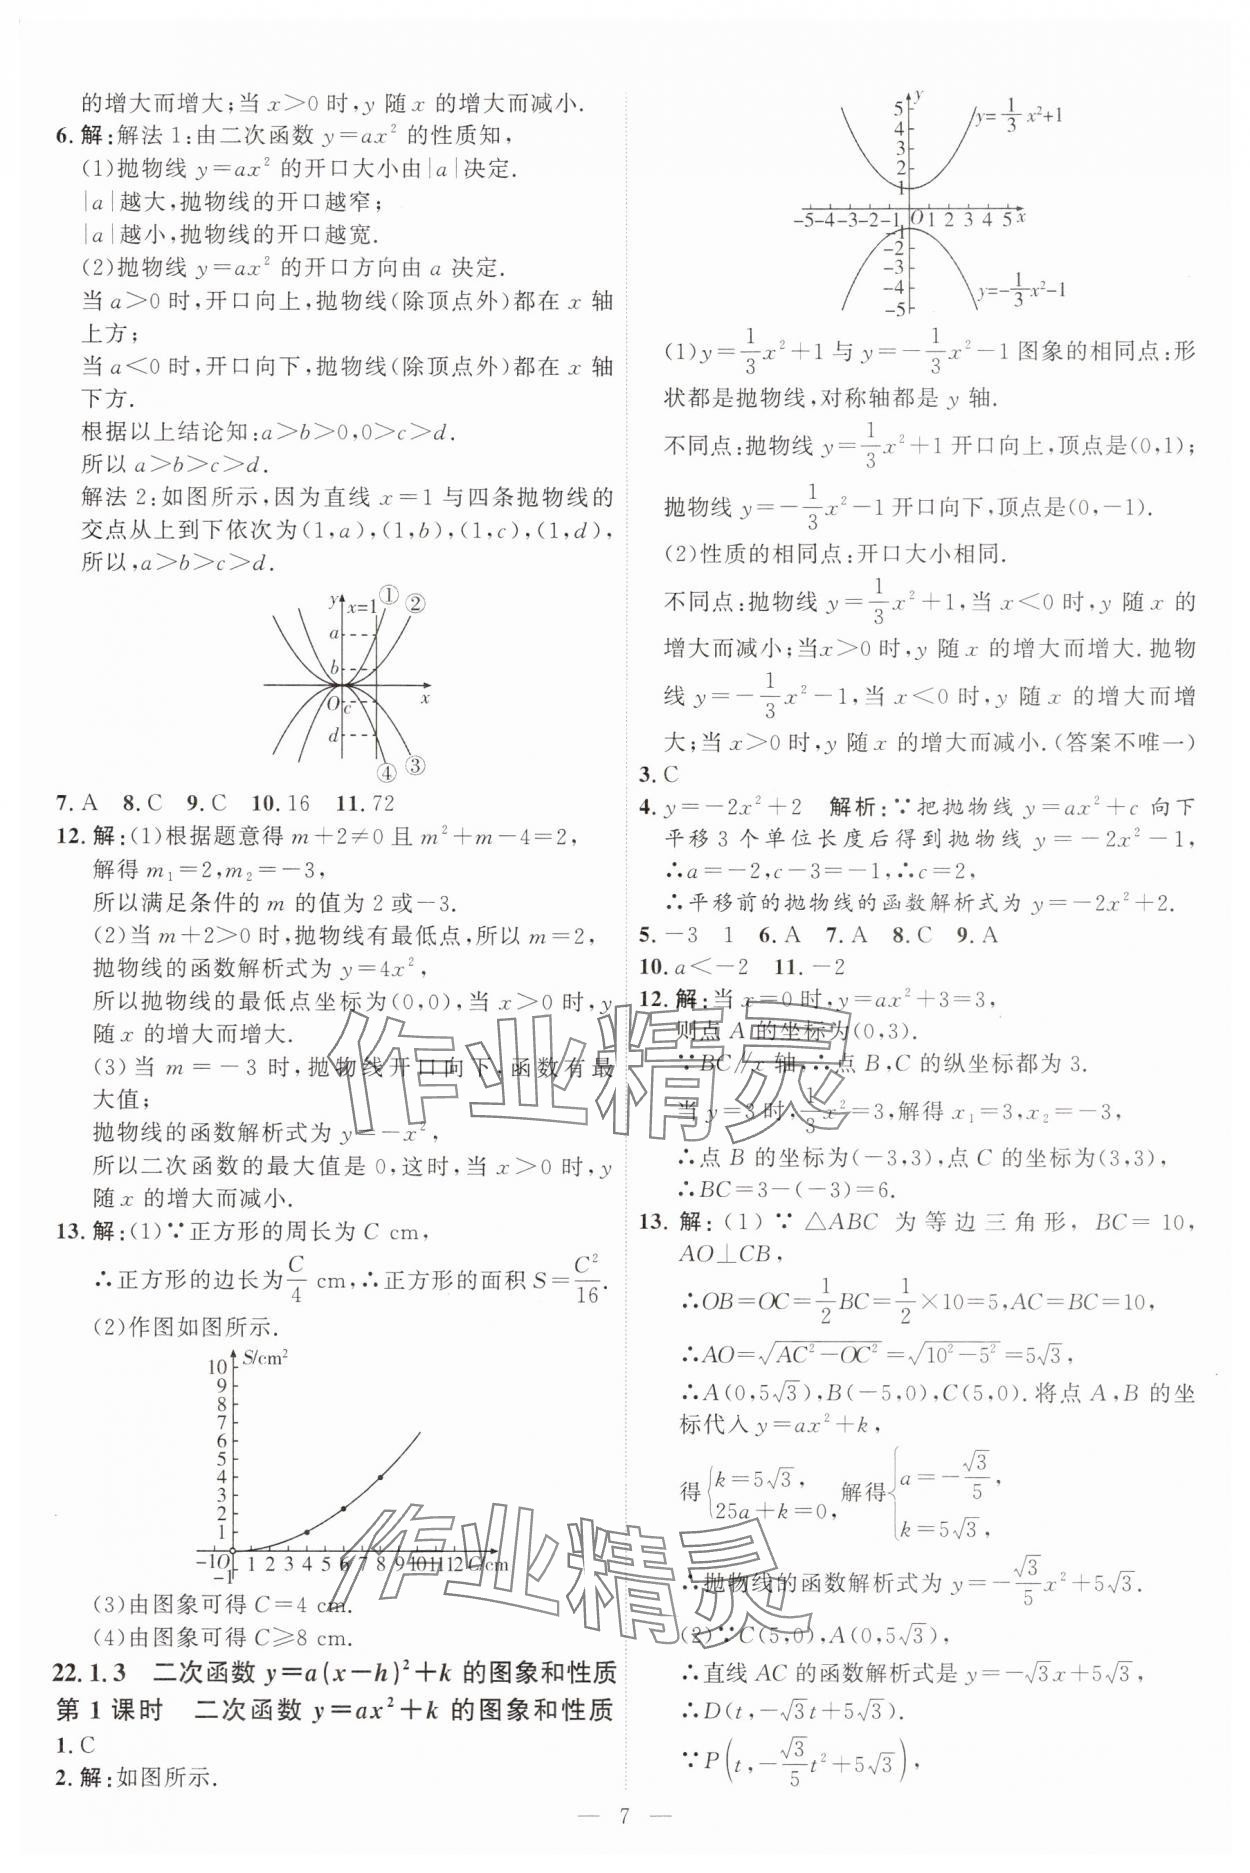 的增大而增大;当 x>0 时,y 随 x 的增大而减小.
6. 解:解法 1:由二次函数 y=ax² 的性质知,
(1)抛物线 y=ax² 的开口大小由|a|决定.
|a|越大,抛物线的开口越窄;
|a|越小,抛物线的开口越宽.
(2)抛物线 y=ax² 的开口方向由 a 决定.
当 a>0 时,开口向上,抛物线(除顶点外)都在 x 轴
上方;
当 a<0 时,开口向下,抛物线(除顶点外)都在 x 轴
下方.
根据以上结论知:a>b>0,0>c>d.
所以 a>b>c>d.
解法 2:如图所示,因为直线 x=1 与四条抛物线的
交点从上到下依次为(1,a),(1,b),(1,c),(1,d),
所以,a>b>c>d.
y x=1 ① ②
a
b
O c x
d
④ ③
7. A 8. C 9. C 10. 16 11. 72
12. 解:(1)根据题意得 m+2≠0 且 m²+m-4=2,
解得 m₁=2,m₂=-3,
所以满足条件的 m 的值为 2 或-3.
(2)当 m+2>0 时,抛物线有最低点,所以 m=2,
抛物线的函数解析式为 y=4x²,
所以抛物线的最低点坐标为(0,0),当 x>0 时,y
随 x 的增大而增大.
(3)当 m=-3 时,抛物线开口向下,函数有最
大值;
抛物线的函数解析式为 y=-x²,
所以二次函数的最大值是 0,这时,当 x>0 时,y
随 x 的增大而减小.
13. 解:(1)∵正方形的周长为 C cm,
∴正方形的边长为C/4 cm,∴正方形的面积 S=C²/16.
(2)作图如图所示.
S/cm²
10
9
8
7
6
5
4
3
2
1
-1O 1 2 3 4 5 6 7 8 9 10 11 12 C/cm
-1
(3)由图象可得 C=4 cm.
(4)由图象可得 C≥8 cm.
22.1.3 二次函数 y=a(x-h)²+k 的图象和性质
第 1 课时 二次函数 y=ax²+k 的图象和性质
1. C
2. 解:如图所示.
y
5 y=1/3 x²+1
4
3
2
1
-5-4-3-2-1 O 1 2 3 4 5 x
-1
-2
-3
-4 y=-1/3 x²-1
-5
(1)y=1/3x²+1 与 y=-1/3x²-1 图象的相同点:形
状都是抛物线,对称轴都是 y 轴.
不同点:抛物线 y=1/3x²+1 开口向上,顶点是(0,1);
抛物线 y=-1/3x²-1 开口向下,顶点是(0,-1).
(2)性质的相同点:开口大小相同.
不同点:抛物线 y=1/3x²+1,当 x<0 时,y 随 x 的
增大而减小;当x>0 时,y 随 x 的增大而增大.抛物
线 y=-1/3x²-1,当 x<0 时,y 随 x 的增大而增
大;当 x>0 时,y 随 x 的增大而减小.(答案不唯一)
3. C
4. y=-2x²+2 解析:∵把抛物线 y=ax²+c 向下
平移 3 个单位长度后得到抛物线 y=-2x²-1,
∴a=-2,c-3=-1,∴c=2,
∴平移前的抛物线的函数解析式为 y=-2x²+2.
5. -3 1 6. A 7. A 8. C 9. A
10. a<-2 11. -2
12. 解:当 x=0 时,y=ax²+3=3,
则点 A 的坐标为(0,3).
∵BC∥x 轴,∴点 B,C 的纵坐标都为 3.
当 y=3 时,1/3x²=3,解得 x₁=3,x₂=-3,
∴点 B 的坐标为(-3,3),点 C 的坐标为(3,3),
∴BC=3-(-3)=6.
13. 解:(1)∵△ABC 为等边三角形,BC=10,
AO⊥CB,
∴OB=OC=1/2BC=1/2×10=5,AC=BC=10,
∴AO=√(AC²-OC²)=√(10²-5²)=5√3,
∴A(0,5√3),B(-5,0),C(5,0).将点 A,B 的坐
标代入 y=ax²+k,
得{k=5√3, 25a+k=0, 解得{a=-√3/5, k=5√3,
∴抛物线的函数解析式为 y=-√3/5x²+5√3.
(2)∵C(5,0),A(0,5√3),
∴直线 AC 的函数解析式是 y=-√3x+5√3,
∴D(t,-√3t+5√3).
∵P(t,-√3/5t²+5√3),
— 7 —
作业精灵
作业精灵